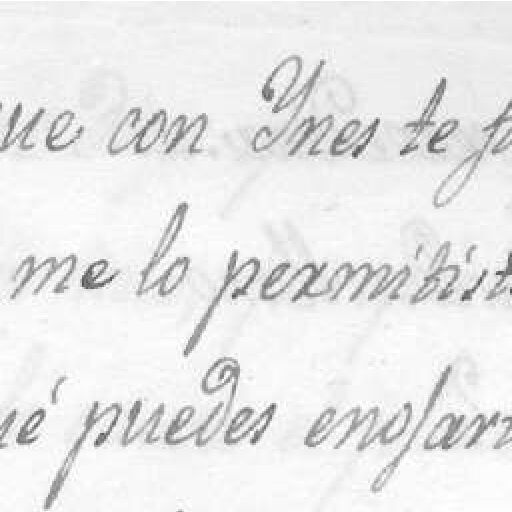 ue con Ynes te fa
me lo permitist
ué puedes enojar